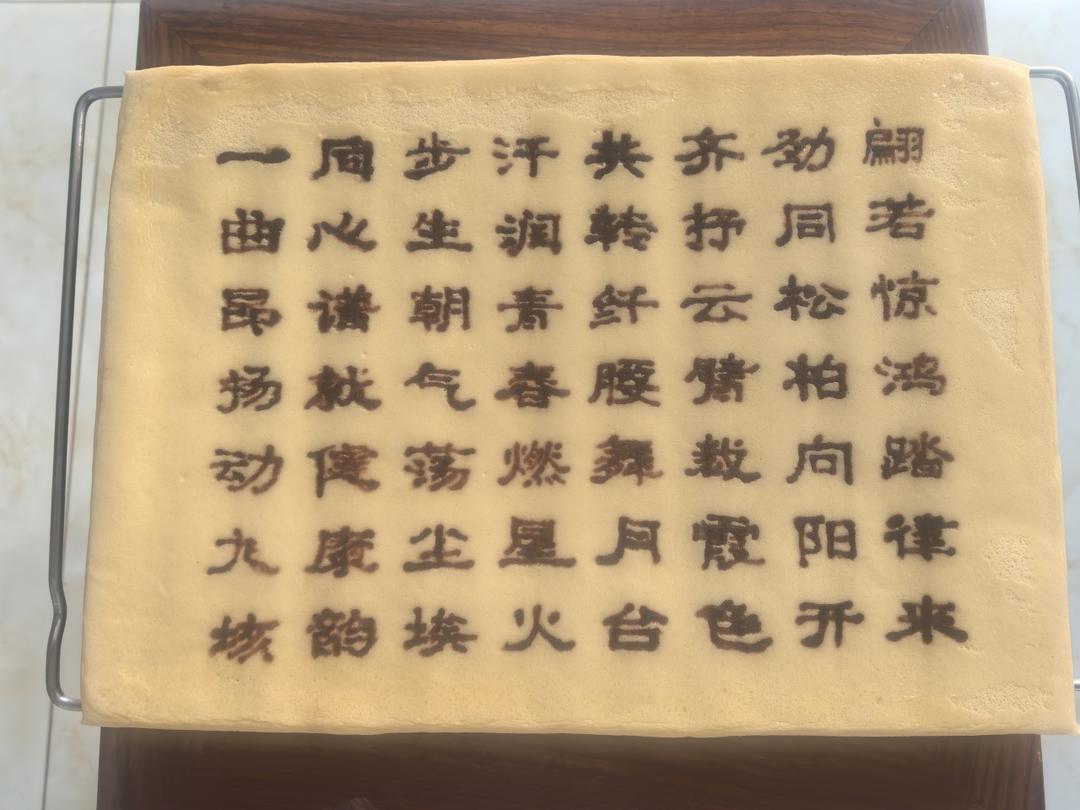 翩若惊鸿踏律来
劲同松柏向阳开
齐抒云臂裁霞色
共转纤腰舞月台
汗润青春燃星火
步生朝气荡尘埃
同心谱就健康韵
一曲昂扬动九垓